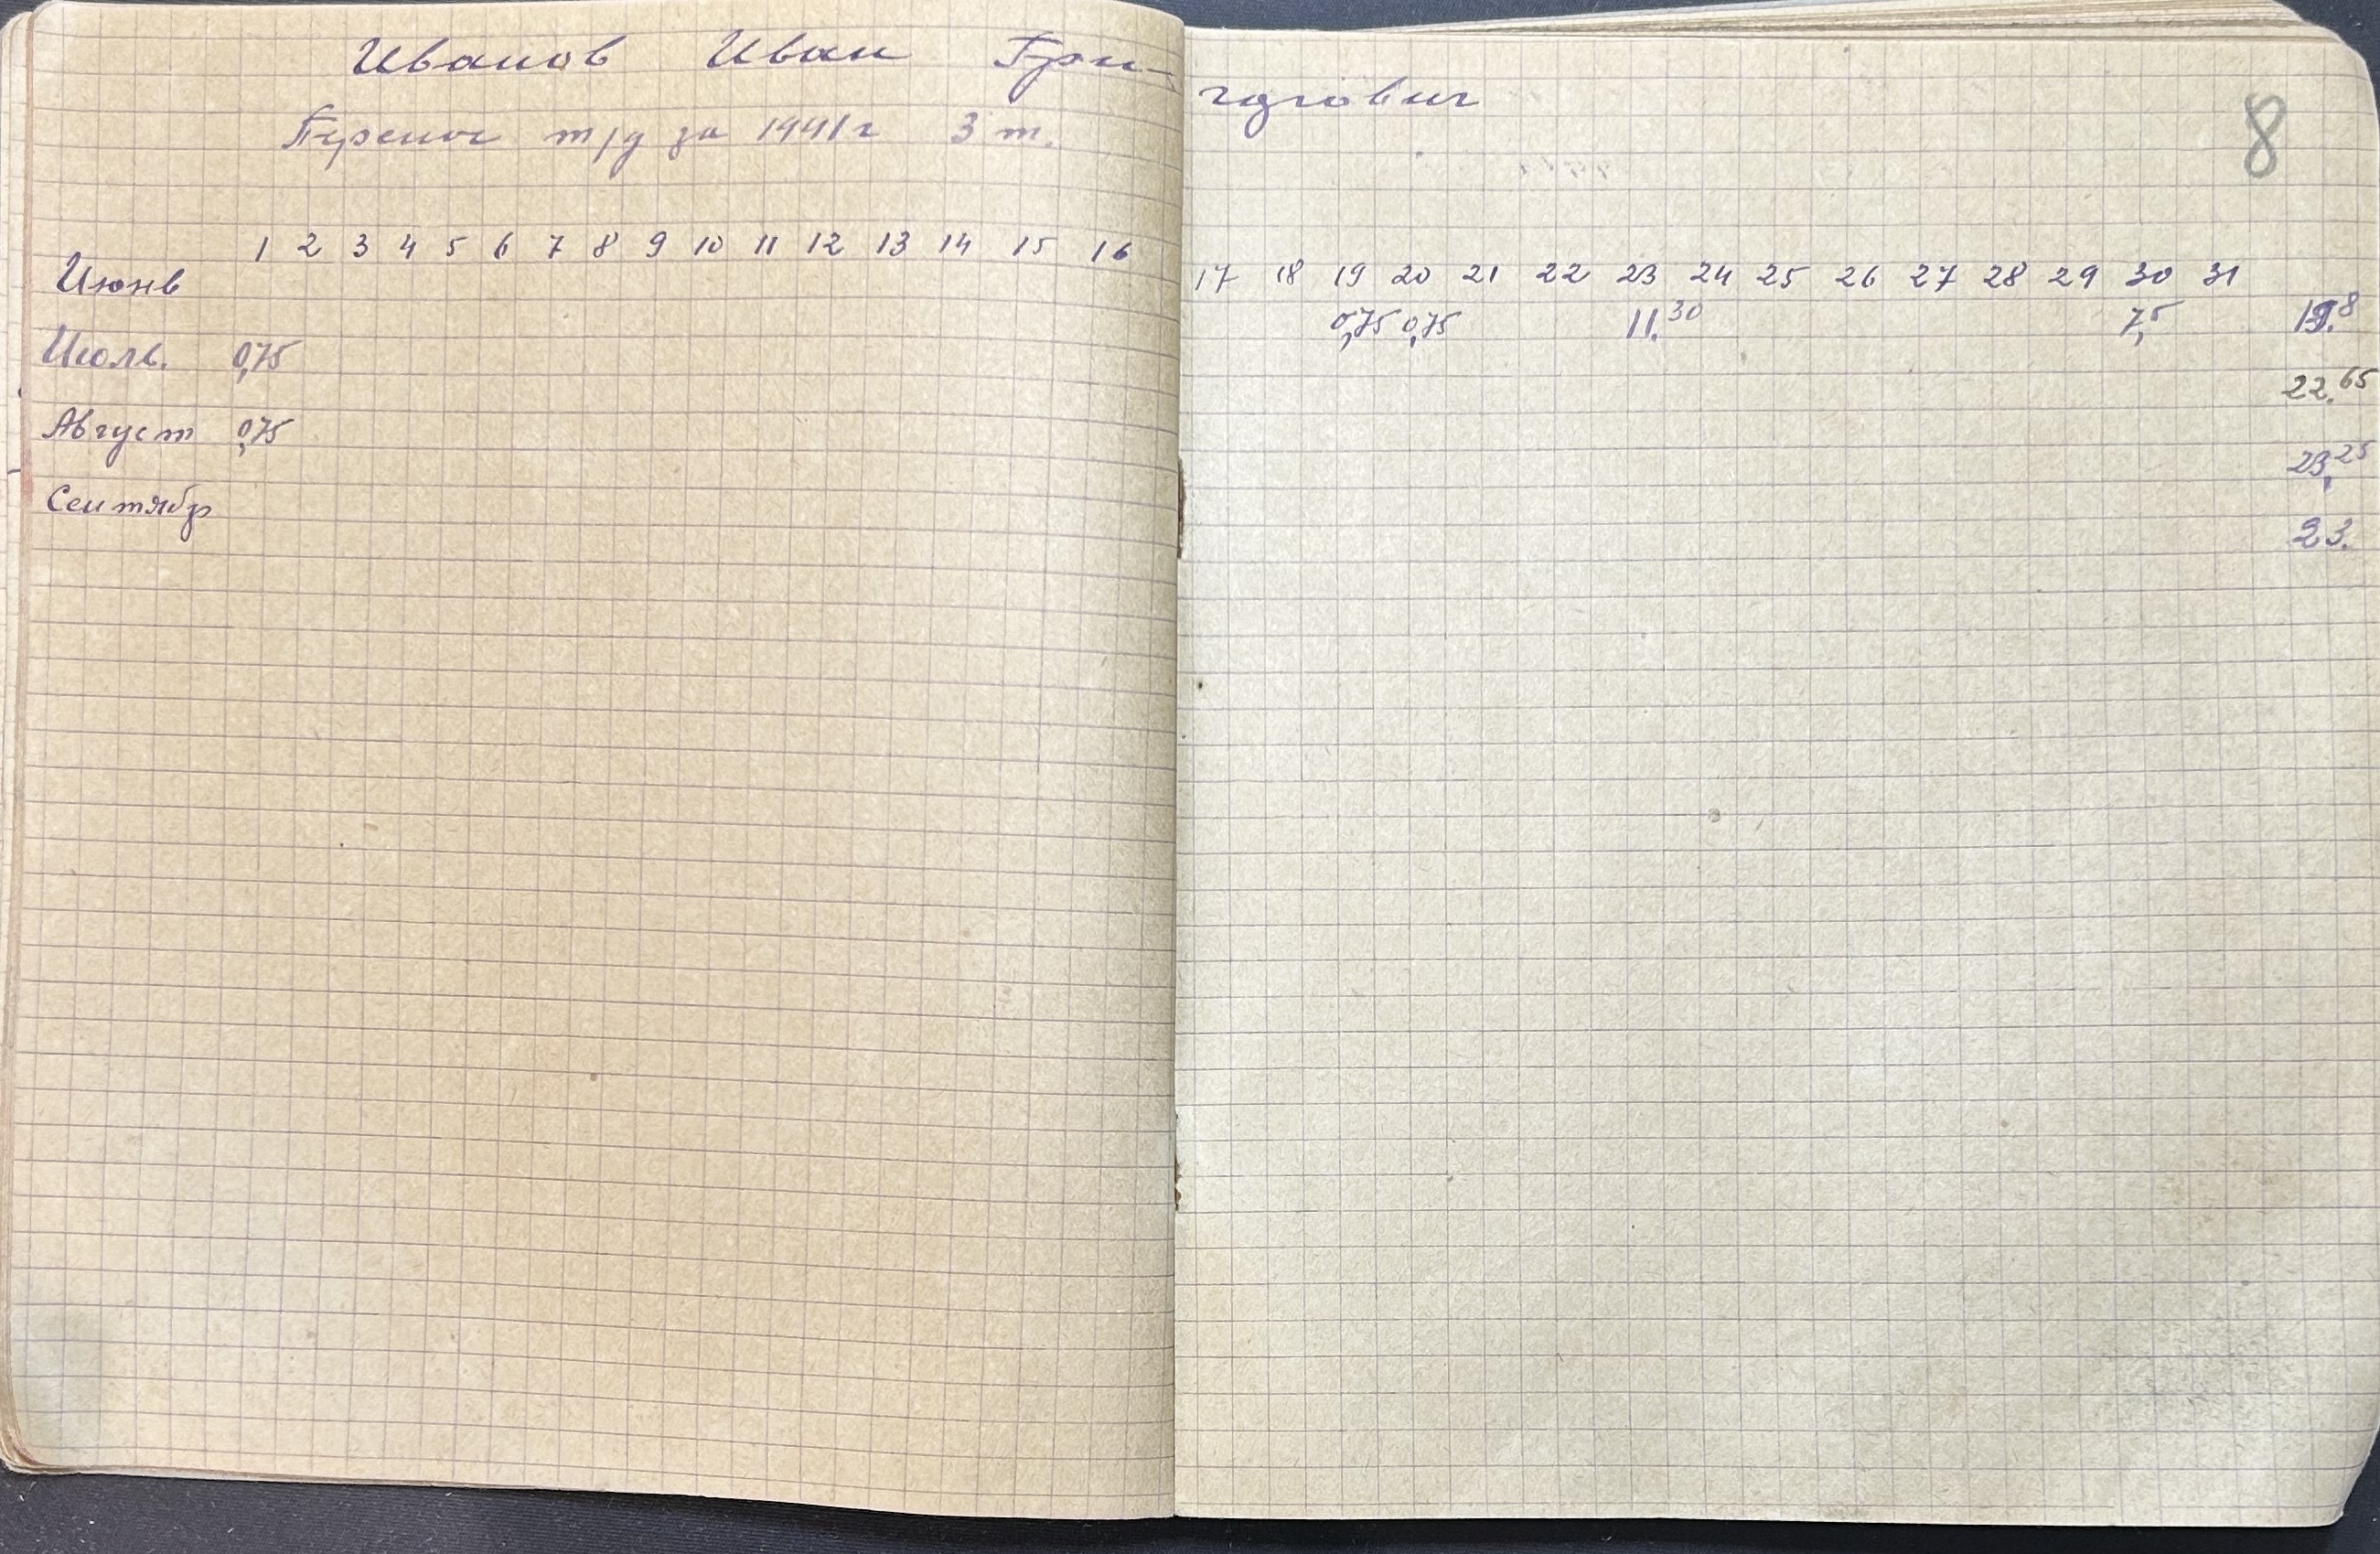 Иванов Иван Гри-
горович
8
т/д за 1941 г 3 т.
1 2 3 4 5 6 7 8 9 10 11 12 13 14 15 16 17 18 19 20 21 22 23 24 25 26 27 28 29 30 31
Июнь 0,75 0,75 11.30 7,5 19.8
Июль. 0,75 22.65
Август 0,75 23,25
Сентябр 23.